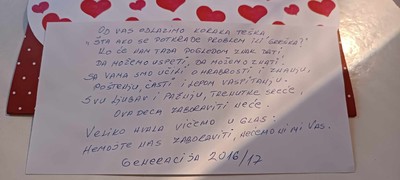 Od vas odlazimo koraka teška
"Šta ako se potkrade problem ili greška?"
Ko će nam tada pogledom znak dati
Da možemo uspeti, da možemo znati.
Sa vama smo učili o hrabrosti i znanju,
Poštenju, časti i lepom vaspitanju.
Svu ljubav i pažnju, trenutke sreće,
Ova deca zaboraviti neće.
Veliko hvala vičemo u glas:
Nemojte nas zaboraviti, nećemo ni mi Vas.
Generacija 2016/17